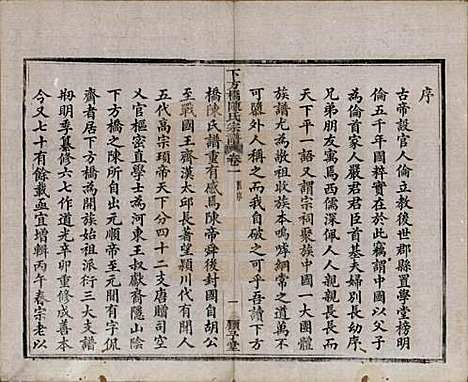 序
古帝設官人倫立教後世郡縣置學堂榜明
倫五千年國粹實在於此竊謂中國以父子
倫為首惟人家嚴君君臣首基夫婦別長幼序
兄弟朋友寓焉西儒深佩人人親親長長
天下平一語又謂宗祠聚族中國一大團體
族譜尤為敬祖收族本嗚呼綱常之道萬不
可墮外人稱之而我自棄之可乎吾讀下方
下方橋陳氏宗譜 卷一 舊序 一 穎
橋陳氏譜重有感焉陳帝舜後封國自胡公
至戰國王齊漢太邱長著望潁川代有聞人
五代高宗瑣帝天下分四十二支唐贈司空
又官樞密直學士為河東王叔獻齋隱山陰
下方橋之陳所自出元順帝至元間有字侃
齋者居下方橋為開族始祖派衍三大支譜
剏明季纂修六七作道光辛卯重修成善本
今又七十有餘載亟宜增輯丙午春宗老以